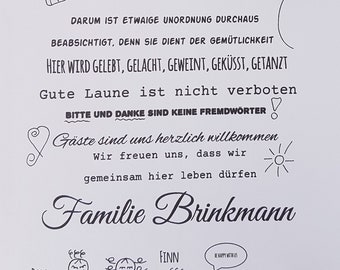 DARUM IST ETWAIGE UNORDNUNG DURCHAUS
BEABSICHTIGT, DENN SIE DIENT DER GEMÜTLICHKEIT
HIER WIRD GELEBT, GELACHT, GEWEINT, GEKÜSST, GETANZT
Gute Laune ist nicht verboten
BITTE UND DANKE SIND KEINE FREMDWÖRTER!
Gäste sind uns herzlich willkommen
Wir freuen uns, dass wir
gemeinsam hier leben dürfen
Familie Brinkmann
FINN
BE HAPPY WITH US